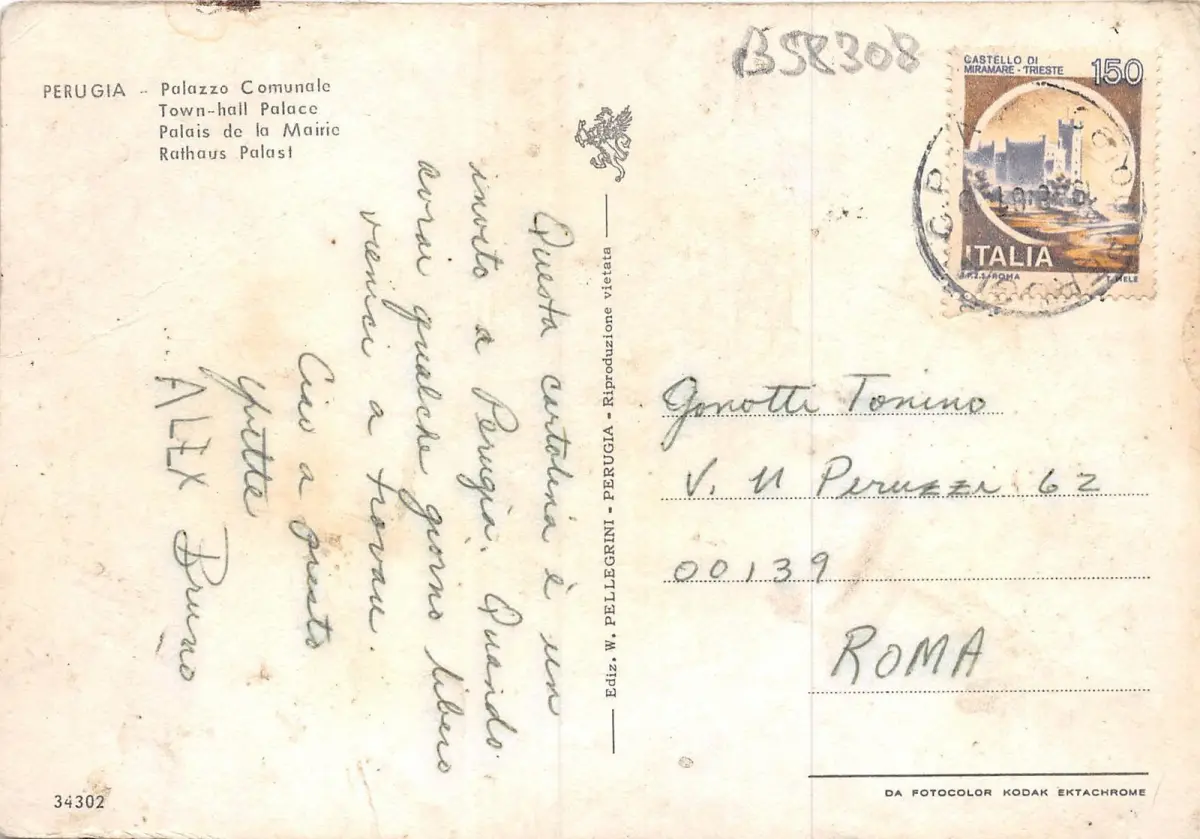 B58308
PERUGIA - Palazzo Comunale
Town-hall Palace
Palais de la Mairie
Rathaus Palast
Questa cartolina è un
invito a Perugia. Quando
avrai qualche giorno libero
vienici a trovare.
Ciao a presto
Yvette
ALEX Bruno
34302
Ediz. W. PELLEGRINI - PERUGIA - Riproduzione vietata
CASTELLO DI
MIRAMARE - TRIESTE
150
ITALIA
I.P.Z.S. - ROMA
Gonotti Tonino
V. U Peruzzi 62
00139
ROMA
DA FOTOCOLOR KODAK EKTACHROME